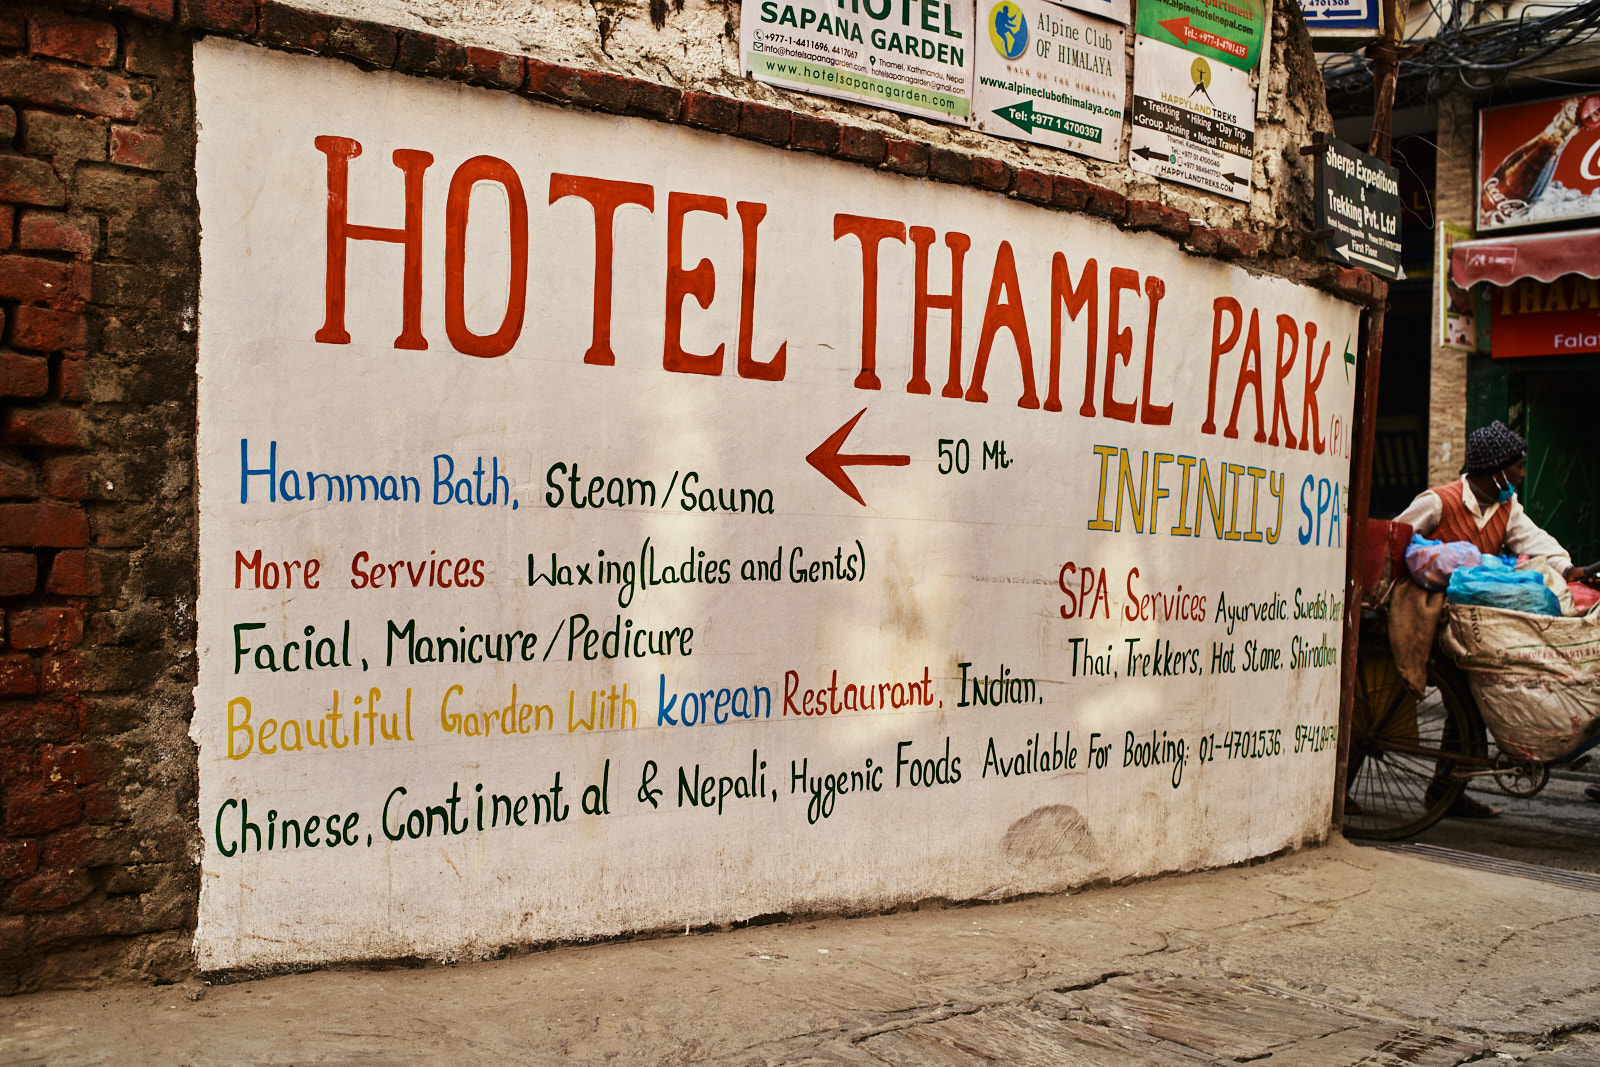 HOTEL
SAPANA GARDEN
+977-1-4411696, 4417067
Thamel, Kathmandu, Nepal
info@hotelsapanagarden.com, hotelsapanagarden@gmail.com
www.hotelsapanagarden.com
Alpine Club
OF HIMALAYA
WALK OF THE HIMALAYA
www.alpineclubofhimalaya.com
Tel: +977 1 4700397
partment
www.alpinehotelnepal.com
Tel.: +977-1-4701435
HAPPYLANDTREKS
• Trekking • Hiking • Day Trip
• Group Joining • Nepal Travel Info
Thamel, Kathmandu, Nepal
HAPPYLANDTREKS.COM
4701308
Sherpa Expedition
&
Trekking Pvt. Ltd
First Floor
THAM
Fala
HOTEL THAMEL PARK (P.) L
50 Mt.
INFINIIY SPA
Hamman Bath, Steam/Sauna
More Services Waxing(Ladies and Gents)
Facial, Manicure/Pedicure
SPA Services Ayurvedic. Swedish, Deep
Thai, Trekkers, Hot Stone. Shirodhara
Beautiful Garden With korean Restaurant, Indian,
Chinese, Continental & Nepali, Hygenic Foods Available For Booking: 01-4701536, 9741847